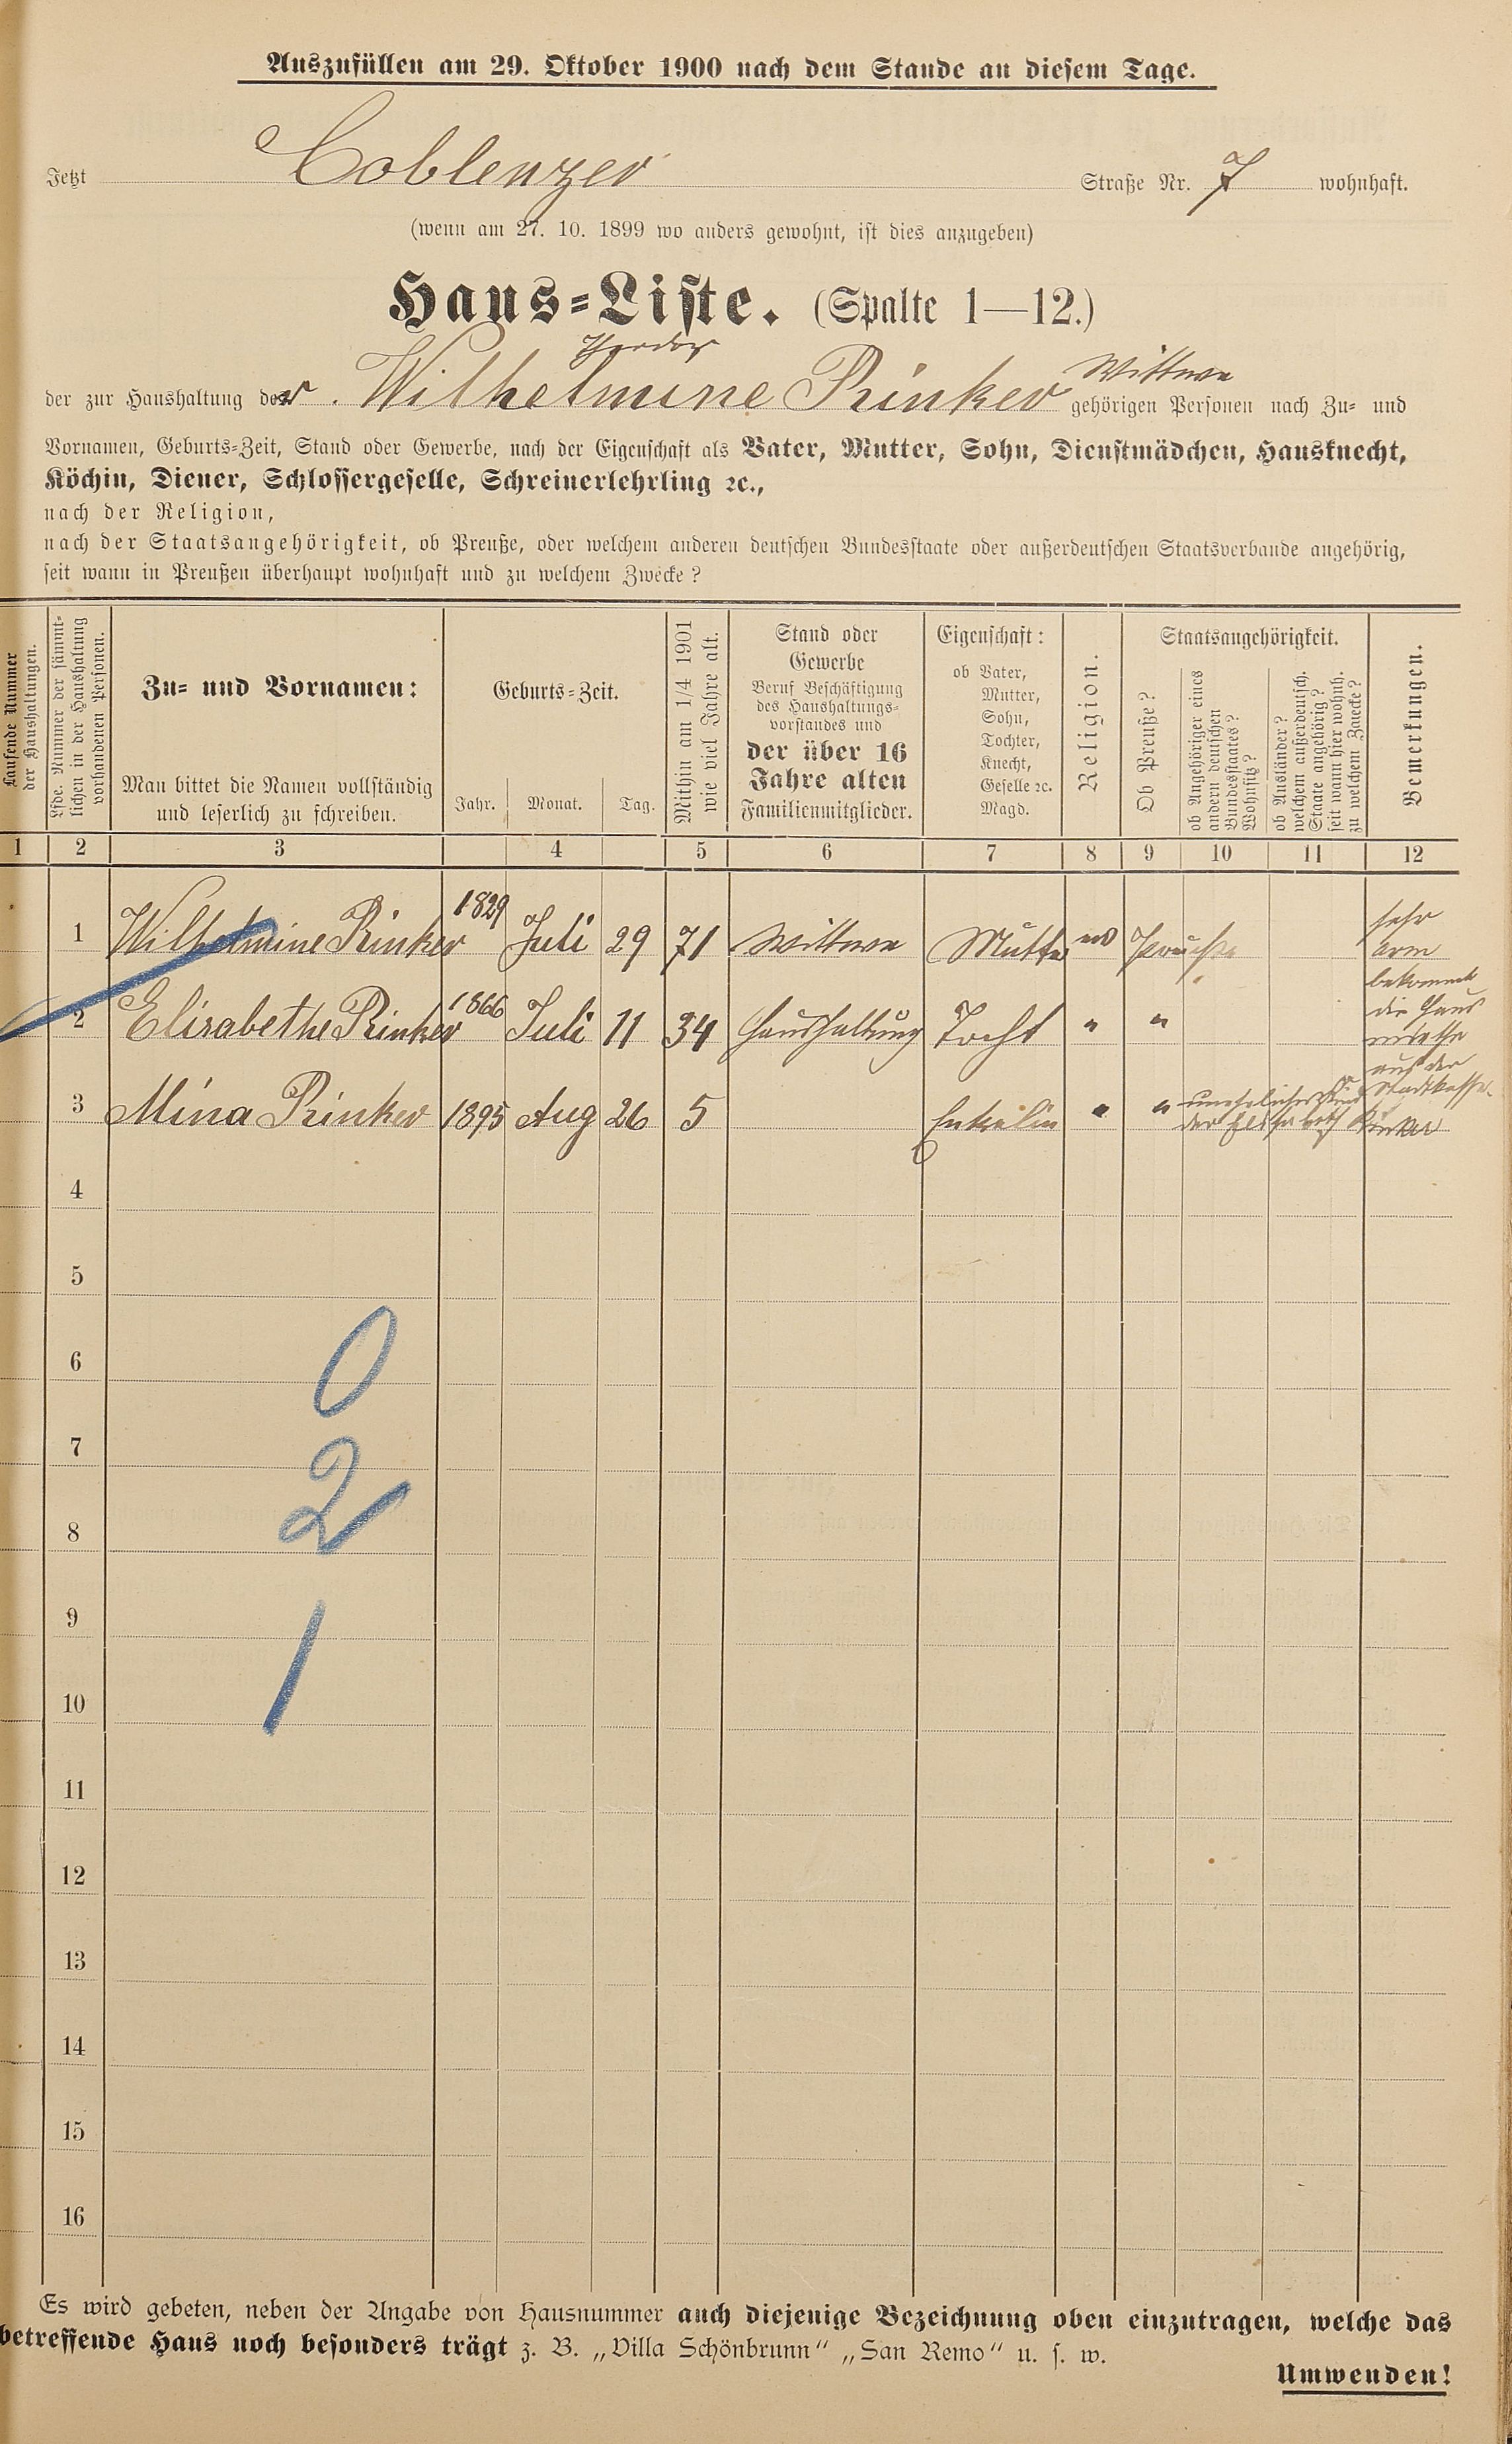 Auszufüllen am 29. Oktober 1900 nach dem Stande an diesem Tage.
Jetzt Coblenzer Straße Nr. 7 wohnhaft.
(wenn am 27. 10. 1899 wo anders gewohnt, ist dies anzugeben)
Haus=Liste. (Spalte 1—12.)
Theodor
der zur Haushaltung der Wilhelmine Rinker Wittwe gehörigen Personen nach Zu= und
Vornamen, Geburts=Zeit, Stand oder Gewerbe, nach der Eigenschaft als Vater, Mutter, Sohn, Dienstmädchen, Hausknecht,
Köchin, Diener, Schlossergeselle, Schreinerlehrling ꝛc.,
nach der Religion,
nach der Staatsangehörigkeit, ob Preuße, oder welchem anderen deutschen Bundesstaate oder außerdeutschen Staatsverbande angehörig,
seit wann in Preußen überhaupt wohnhaft und zu welchem Zwecke?
Laufende Nummer
der Haushaltungen.
Lfde. Nummer der sämmt=
lichen in der Haushaltung
vorhandenen Personen.
Zu= und Vornamen:
Man bittet die Namen vollständig
und leserlich zu schreiben.
Geburts=Zeit.
Jahr. Monat. Tag.
Mithin am 1/4 1901
wie viel Jahre alt.
Stand oder
Gewerbe
Beruf Beschäftigung
des Haushaltungs=
vorstandes und
der über 16
Jahre alten
Familienmitglieder.
Eigenschaft:
ob Vater,
Mutter,
Sohn,
Tochter,
Knecht,
Geselle ꝛc.
Magd.
Religion.
Staatsangehörigkeit.
Ob Preuße?
ob Angehöriger eines
andern deutschen
Bundesstaates?
Wohnsitz?
ob Ausländer?
welchem außerdeutsch.
Staate angehörig?
seit wann hier wohnh.
zu welchem Zwecke?
Bemerkungen.
1 2 3 4 5 6 7 8 9 10 11 12
1 Wilhelmine Rinker 1829 Juli 29 71 Wittwe Mutter ev Preuße sehr
arm
bekommt
die Haus
miethe
aus der
Stadtkasse.
2 Elisabethe Rinker 1866 Juli 11 34 Haushaltung Tocht " "
3 Mina Rinker 1895 Aug 26 5 Enkelin " " uneheliches Kind
der Elisabeth Rinker
4
5
6
0
7
2
8
9
1
10
11
12
13
14
15
16
Es wird gebeten, neben der Angabe von Hausnummer auch diejenige Bezeichnung oben einzutragen, welche das
betreffende Haus noch besonders trägt z. B. „Villa Schönbrunn" „San Remo" u. s. w.
Umwenden!